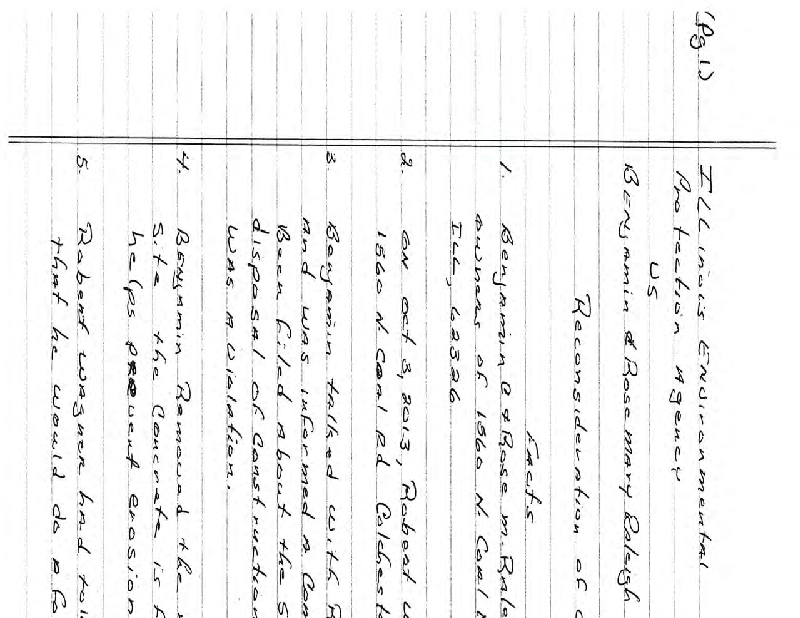 (Pg 1)
ILLinois Environmental
Protection Agency
vs
Benjamin & Rosemary Raleigh
Reconsideration of
Facts
1. Benjamin C & Rose M. Rale
owners of 1560 N. Coal
ILL, 62326
2. ON Oct 3, 2013, Robert W
1560 N Coal Rd Colcheste
3. Benjamin talked with R
And was informed A Com
Been filed About the S
disposal of Construction
was A violation.
4. Benjamin Removed the
site the Concrete is
helps prevent erosion
5. Robert Wagner had tol
that he would do A fo